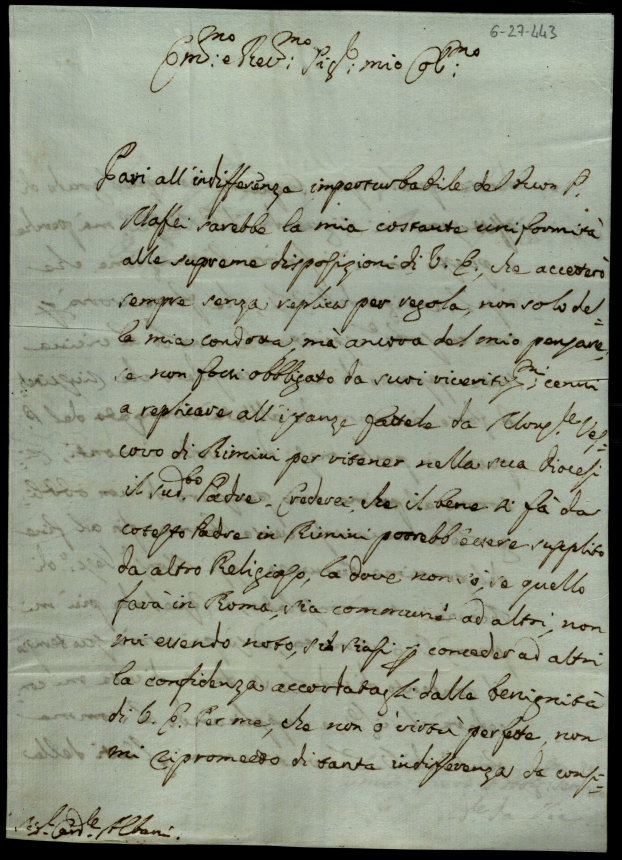 6-27-443
Em.mo e Rev.mo Sig.r mio Ob.mo
Pari all'indifferenza imperturbabile del buon P.
Maffei sarebbe la mia costante uniformità
alle supreme disposizioni di V. E., che accetterò
sempre senza replica per regola, non solo del=
la mia condotta, mà ancora del mio pensare,
se non fossi obbligato da suoi riveriti.mi cenni
a replicare all'istanze fattele da Mons.re Ves=
covo di Rimini per ritener nella sua Diocesi
il sud.to Padre. Crederei, che il bene si fà da
cotesto Padre in Rimini potrebb'essere supplito
da altro Religioso, la dove non sò, se quello
farà in Roma, sia commune ad altri, non
mi essendo noto, siasi conceder ad altri
la confidenza accordatagli dalla benignità
di V. E. Per me, che non ò virtù perfette, non
mi riprometto di tanta indifferenza da cons=
Sig. Card.le Albani.